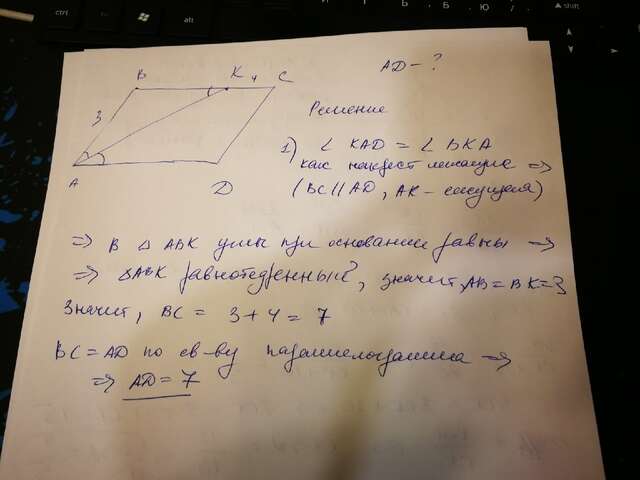 ctrl
alt
shift
Б
Ю
AD - ?
B
K
4
C
3
A
D
Решение
1) ∠ KAD = ∠ BKA
как накрест лежащие =>
(BC || AD, AK - секущая)
=> В △ ABK углы при основание равны =>
=> △ABK равнобедренный, значит, AB = BK = 3
Значит, BC = 3 + 4 = 7
BC = AD по св-ву параллелограмма =>
=> AD = 7